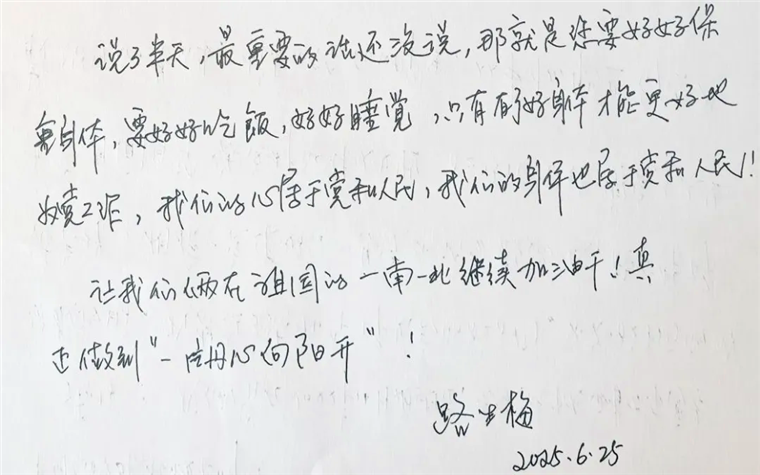 说了半天,最重要的话还没说,那就是您要好好保
重身体,要好好吃饭,好好睡觉,只有有了好身体才能更好地
为党工作,我们的心属于党和人民,我们的身体也属于党和人民!
让我们俩在祖国的一南一北继续加油干!真
正做到"一片丹心向阳开"!
路生梅
2025.6.25